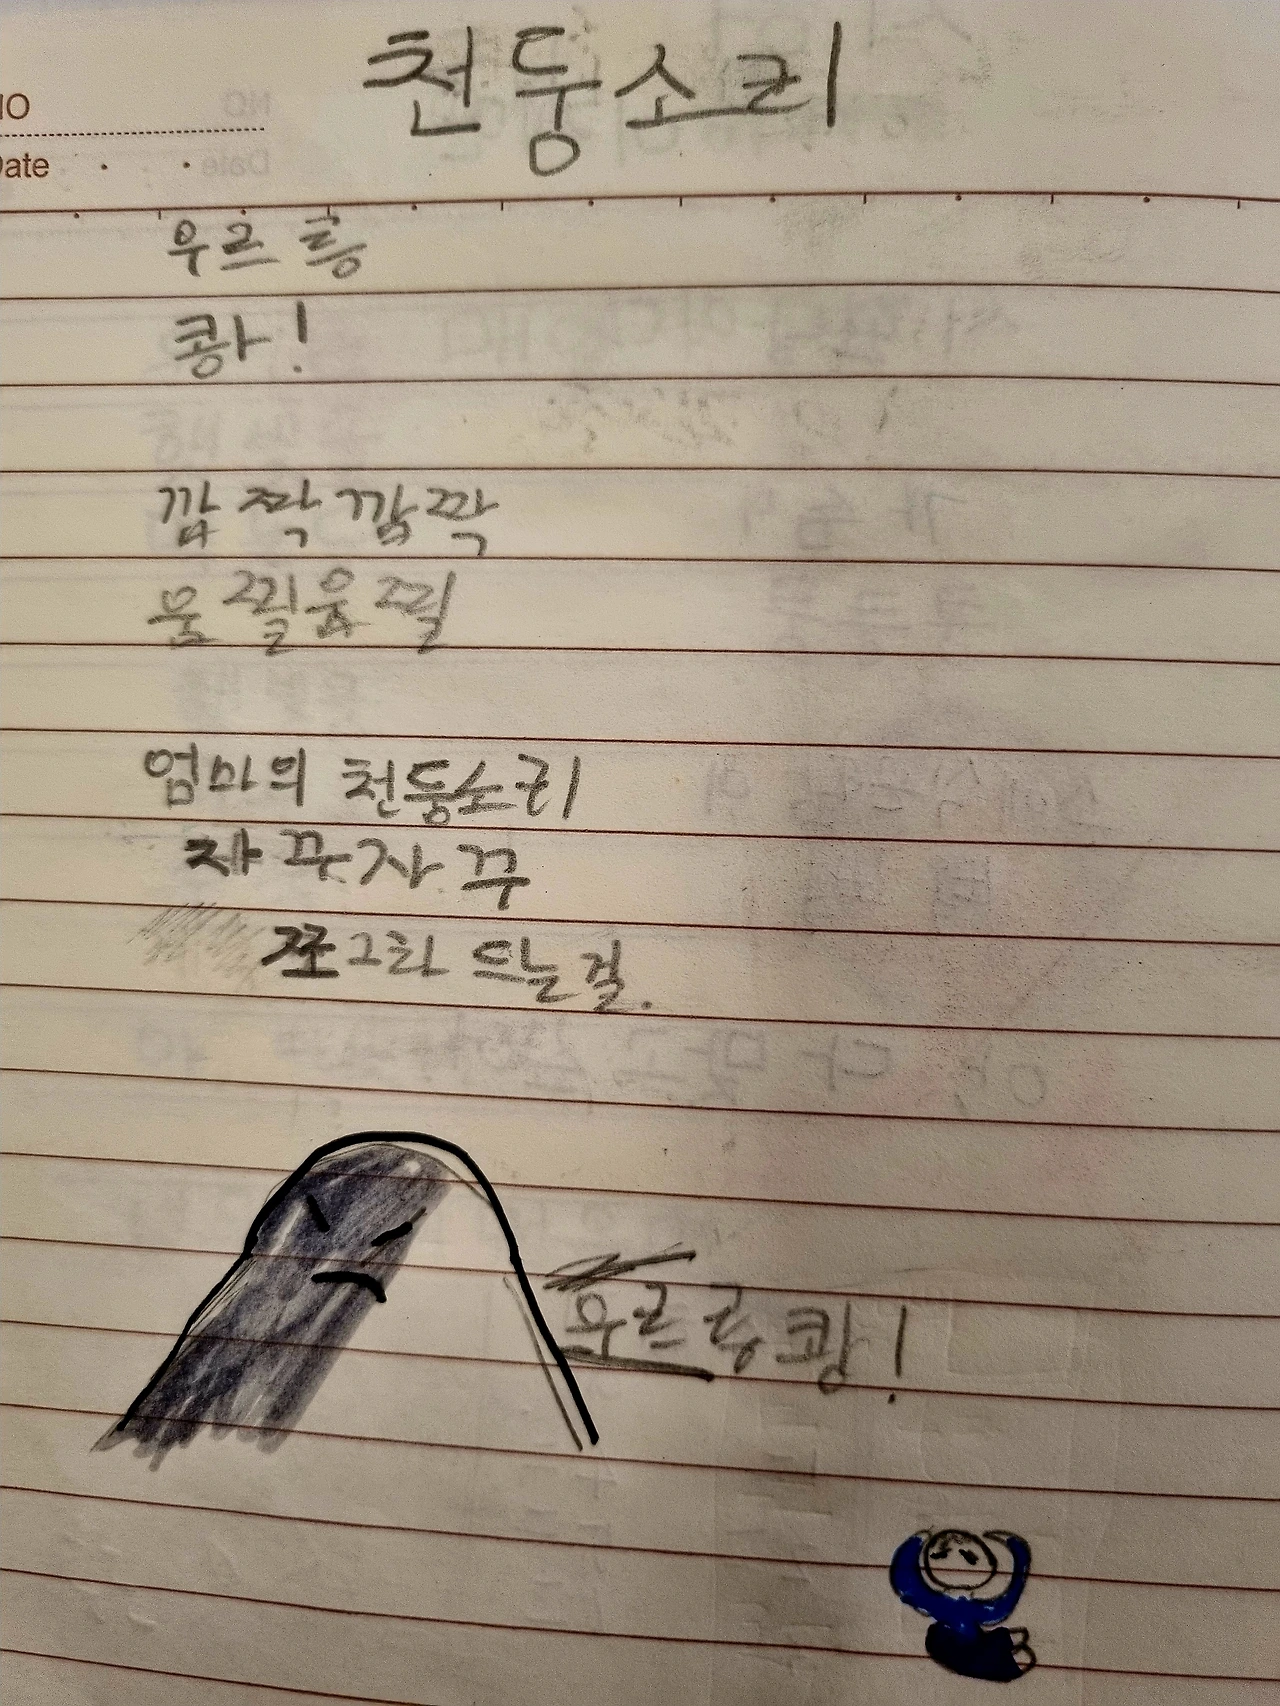 NO
Date . .
천둥소리
우르릉
쾅!
깜짝깜짝
움찔움찔
엄마의 천둥소리
자꾸자꾸
쪼그라드는 걸.
우르릉쾅!